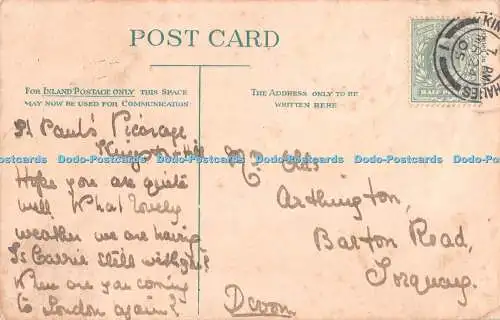 POST CARD
FOR INLAND POSTAGE ONLY THIS SPACE
MAY NOW BE USED FOR COMMUNICATION
THE ADDRESS ONLY TO BE
WRITTEN HERE
HALF PENNY
St Paul's Vicarage
Kingston Hill
Hope you are quite
well. What lovely
weather we are having
Is Carrie still with you?
When are you coming
to London again?
Arthington,
Barton Road,
Torquay.
Devon
Dodo-Postcards Dodo-Postcards Dodo-Postcards Dodo-Postcards Dodo-Postcards
Dodo-Postcards Dodo-Postcards Dodo-Postcards Dodo-Postcards Dodo-Postcards